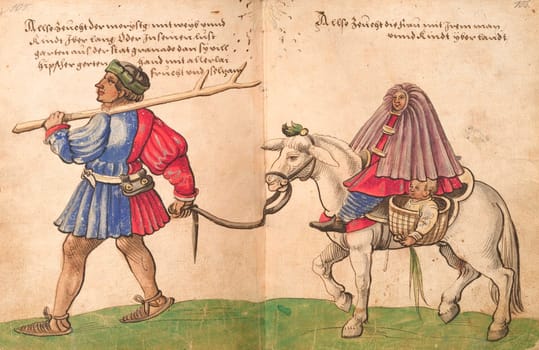 Also zeucht der morysch mit weyb unnd
kindt yber lanng Oder In seinen lust
garten aus der stat granada dan sy vill
hipscher gerten hand mit allerlai
frucht und
Also zeucht die frau mit Irem man
unnd kindt yber landt